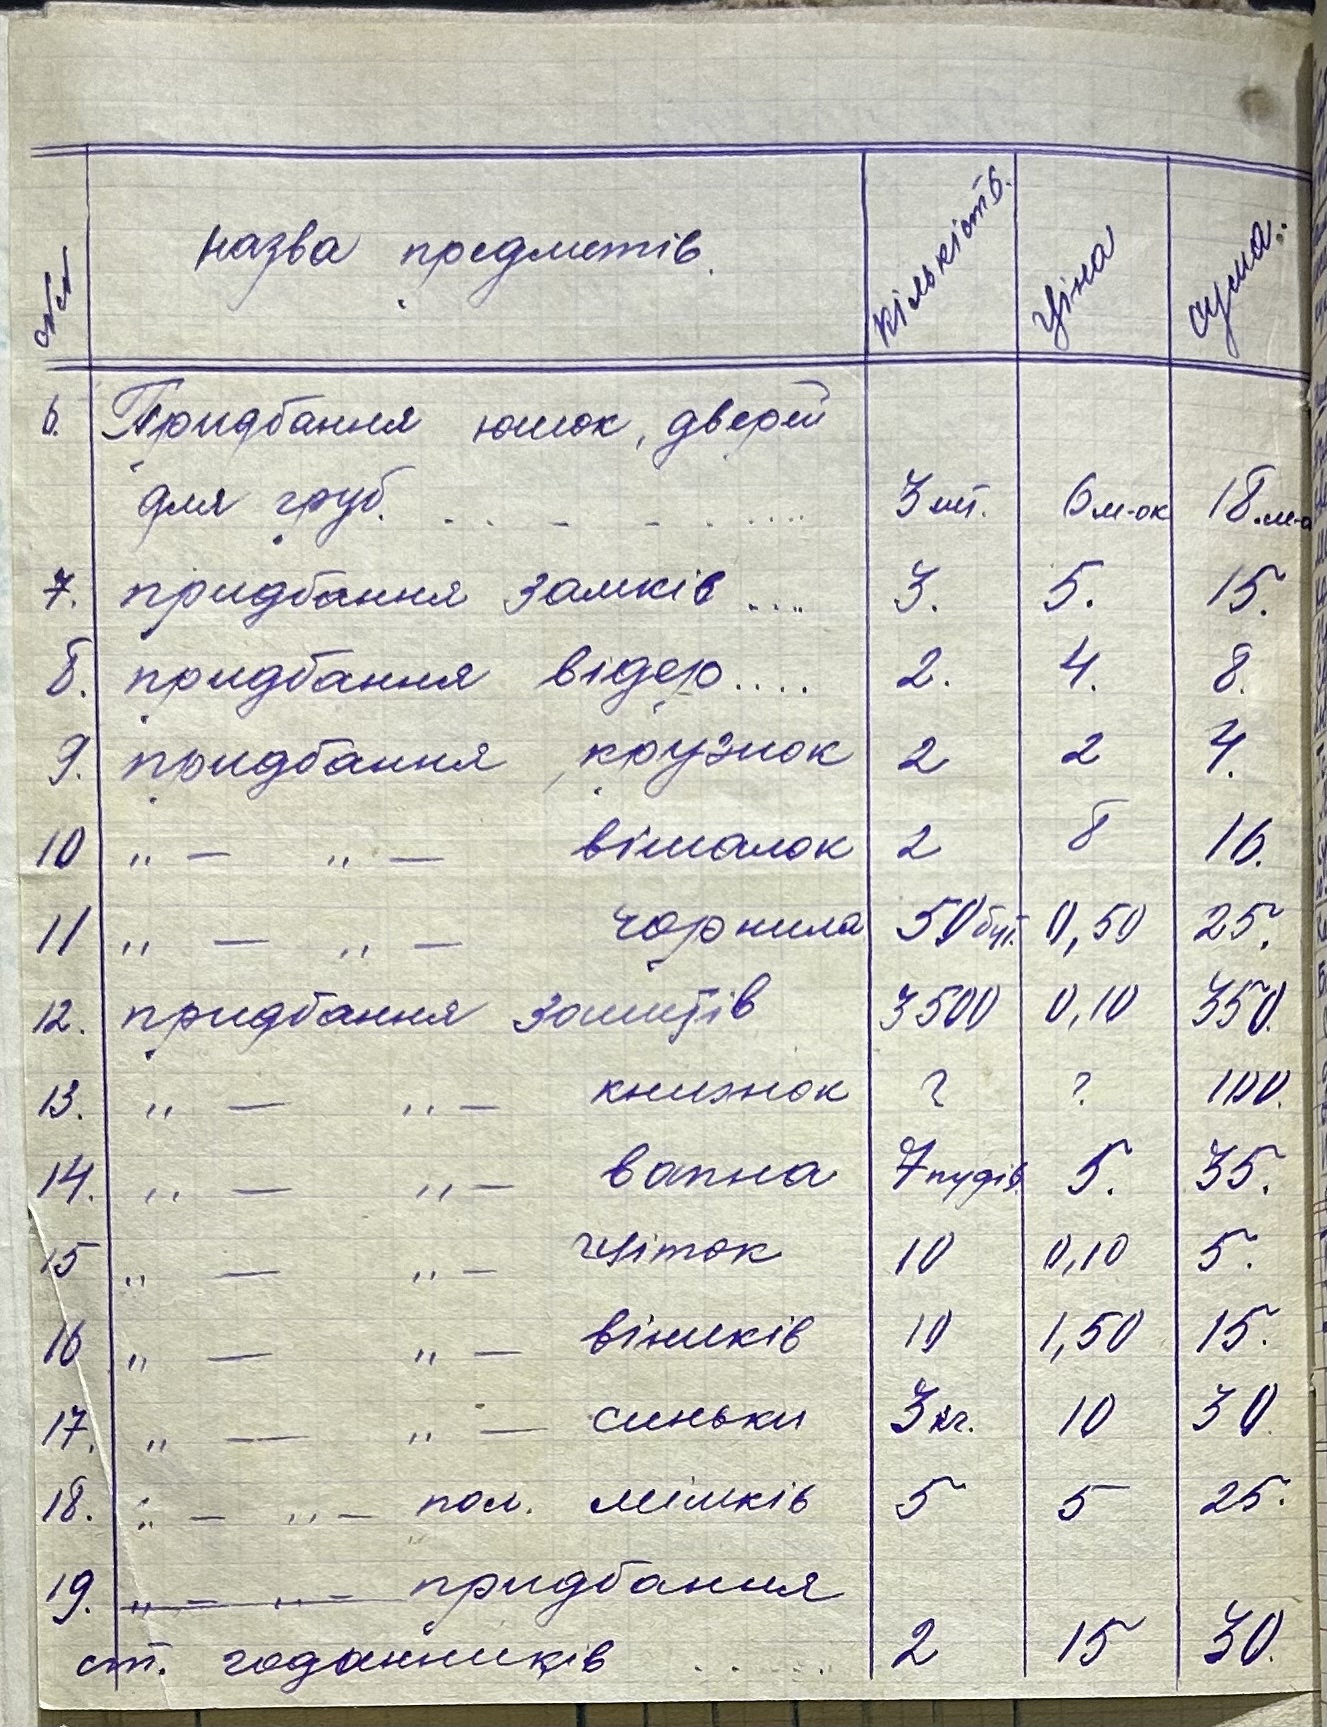 №№ назва предметів. кількість. ціна сума.
6. Придбання юшок, дверей
для груб. 3 шт. 6 м-ок 18. м-о
7. придбання замків .... 3. 5. 15.
8. придбання відер .... 2. 4. 8.
9. придбання кружок 2 2 4.
10 „ — „ — вішалок 2 8 16.
11 „ — „ — чорнила 50 бут. 0,50 25.
12. придбання зошитів 3500 0,10 350.
13. „ — „ — книжок ? ? 100.
14. „ — „ — вапна 7 пудів. 5. 35.
15 „ — „ — щіток 10 0,10 5.
16 „ — „ — віників 10 1,50 15.
17. „ — „ — синьки 3 кг. 10 30.
18. „ — „ — пол. мішків 5 5 25.
19. „ — „ — придбання
ст. годинників 2 15 30.